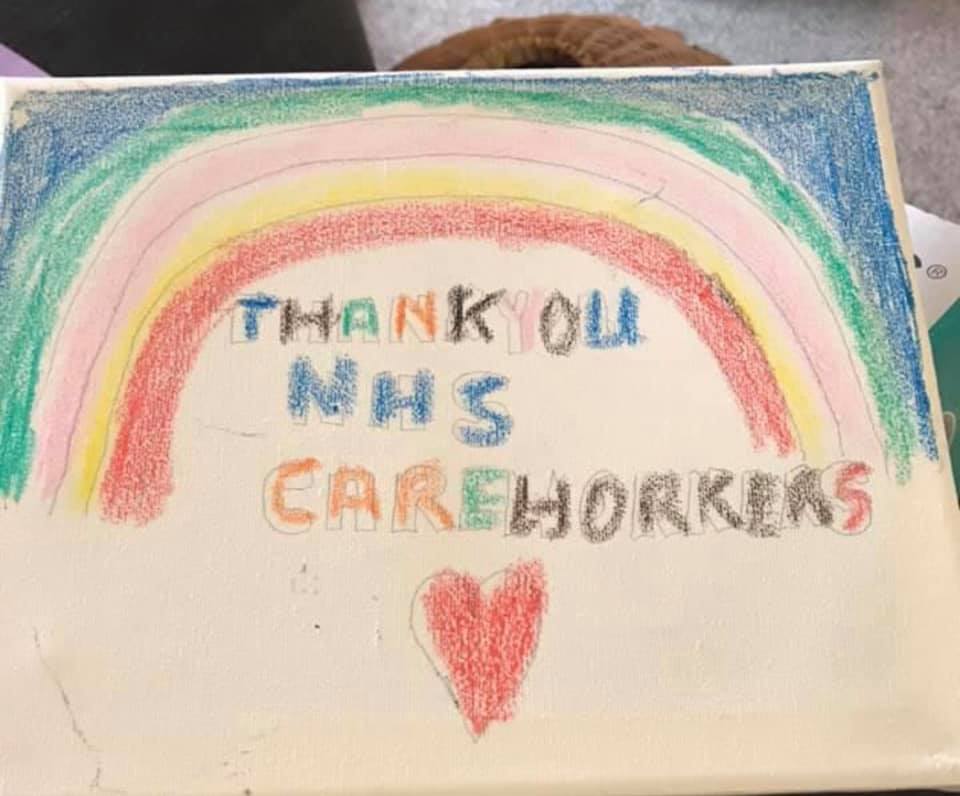 THANKYOU
NHS
CAREWORKERS
®